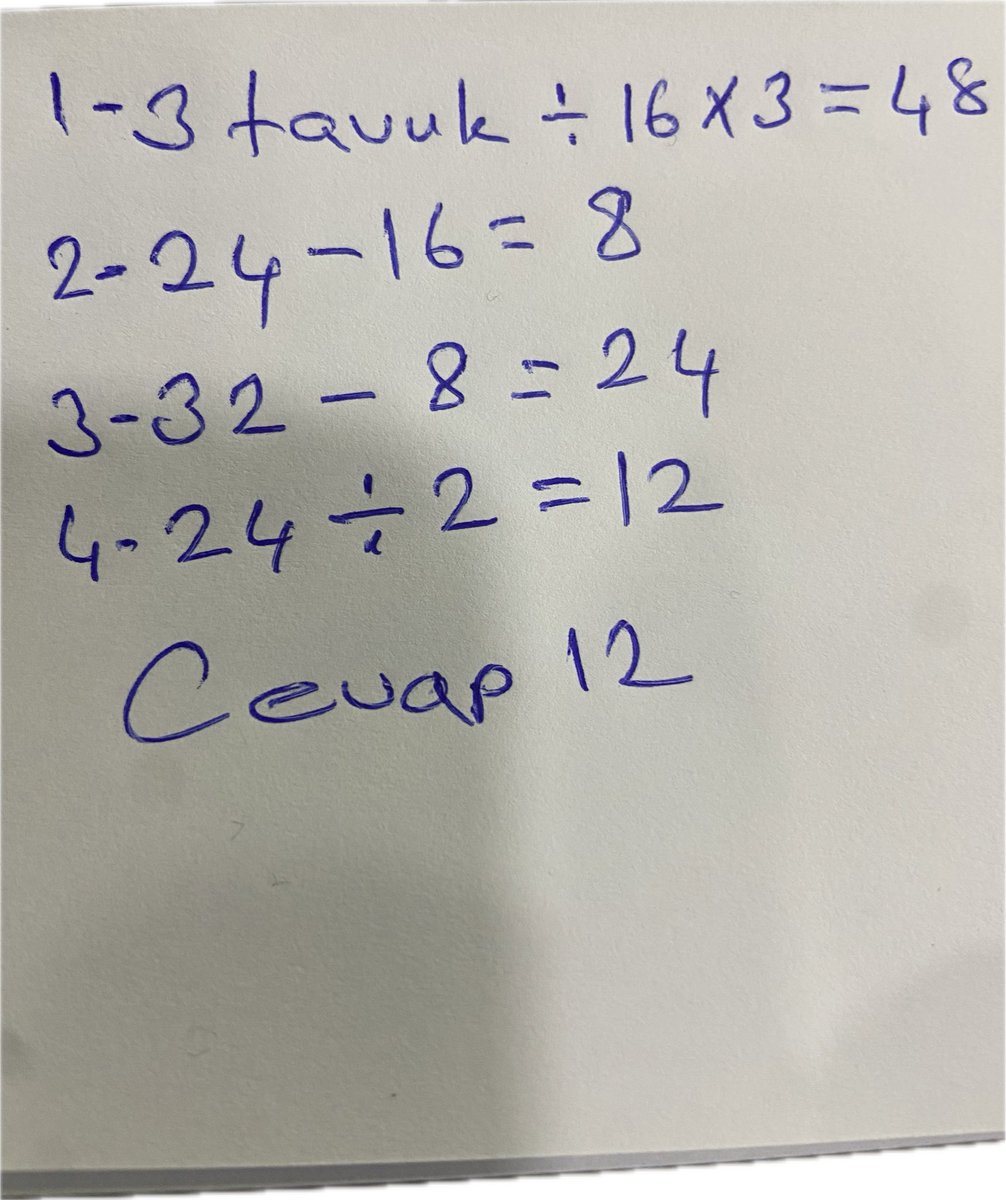 1-3 tavuk ÷ 16 x 3 = 48
2- 24 - 16 = 8
3- 32 - 8 = 24
4- 24 ÷ 2 = 12
Cevap 12